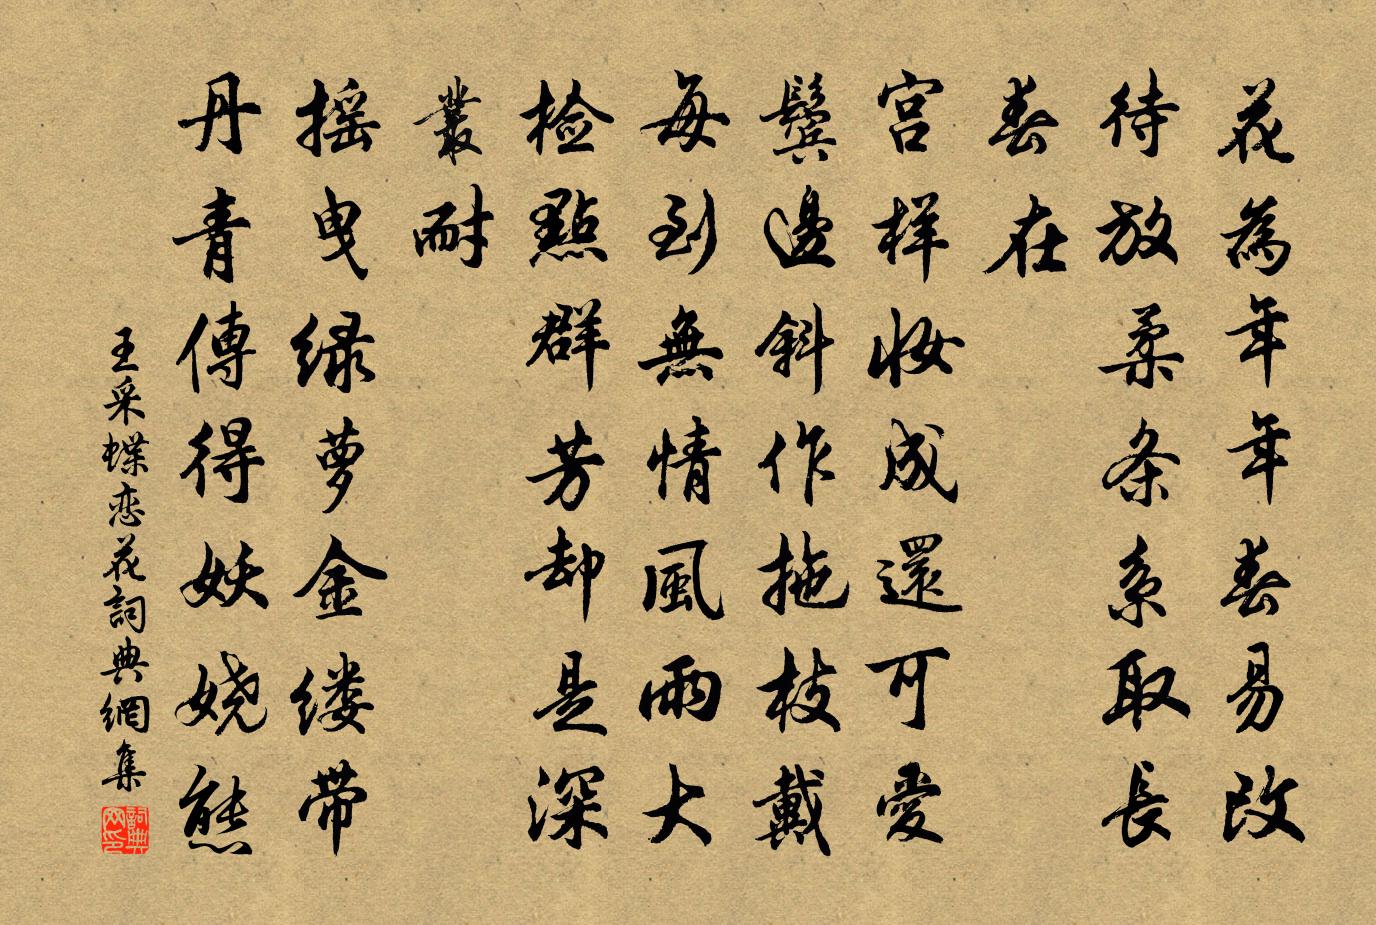 花為年年春易改
待放柔条系取長
春在
宫样妆成還可愛
鬓邊斜作拖枝戴
每到無情風雨大
检點群芳却是深
叢耐
摇曳绿萝金缕带
丹青傳得妖娆態
王采蝶恋花詞典網集
詞典網印